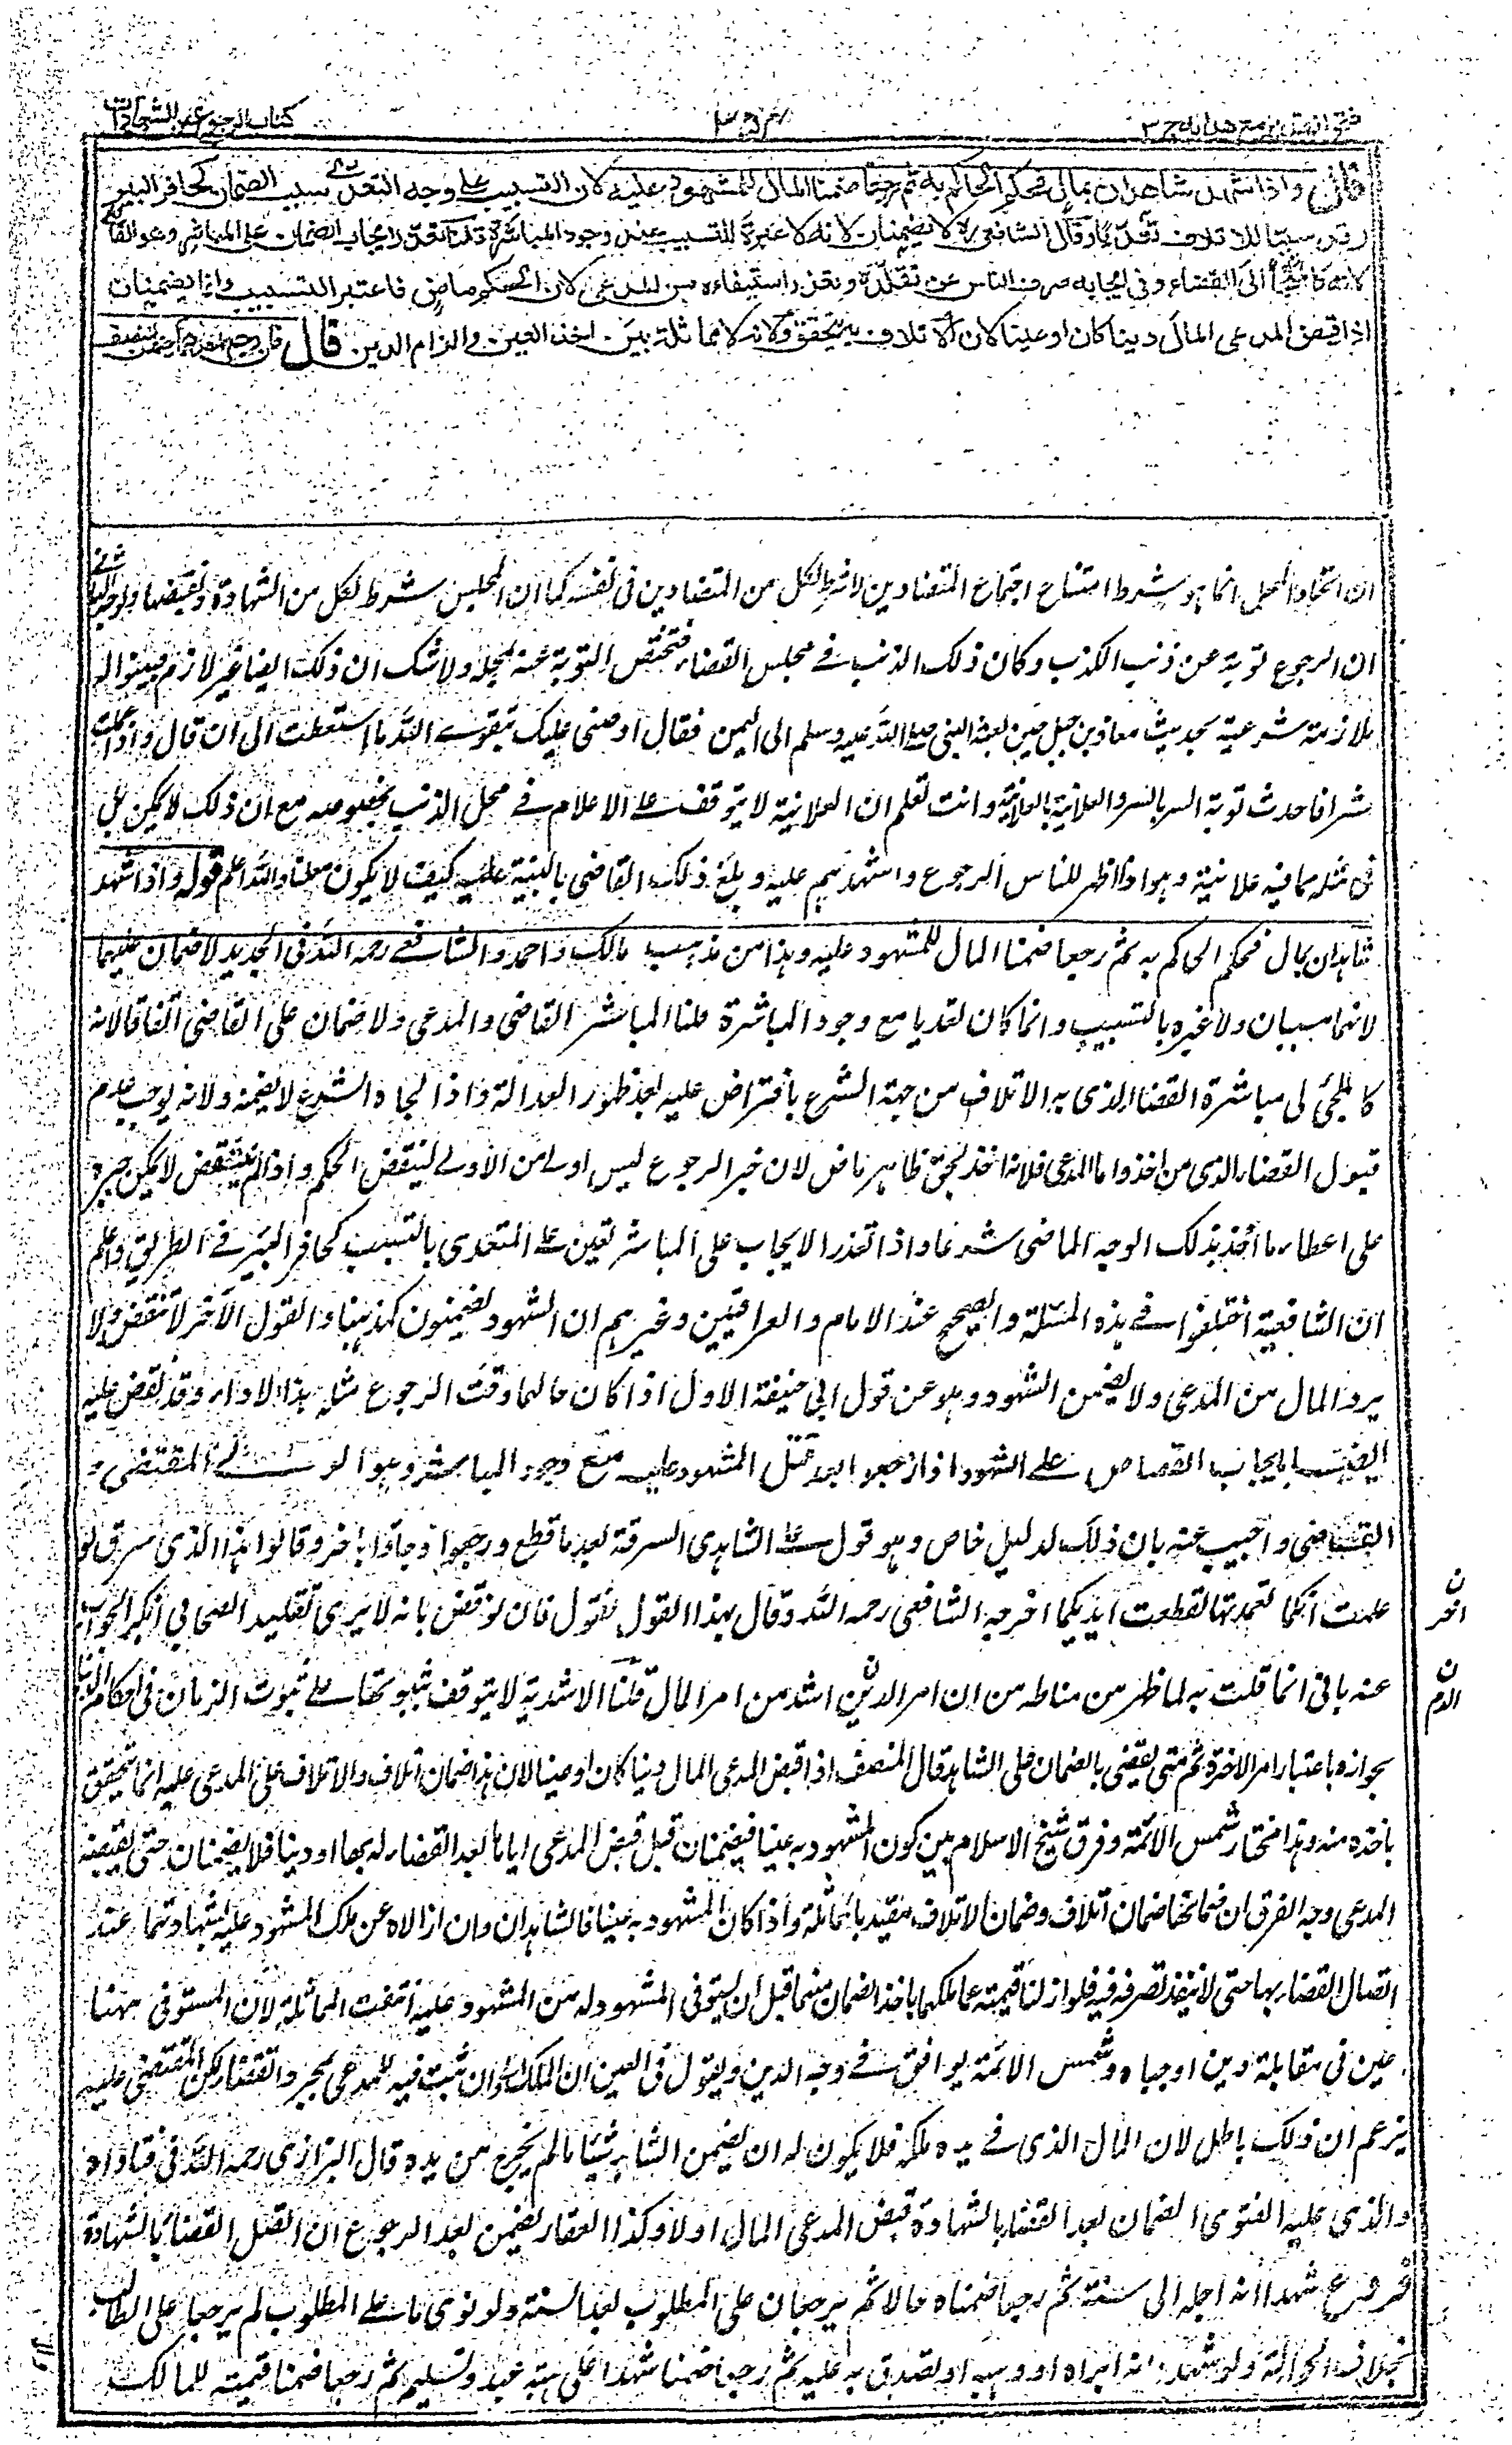 فتح القدير مع هداية ج ٣
كتاب الرجوع عن الشهادات
قال واذا شهد شاهدان بمال فحكم الحاكم به ثم رجعا ضمنا المال للمشهود عليه لان التسبيب على وجه التعدي سبب الضمان كحافر البير
وقد سببا للاتلاف تعديا وقال الشافعي ره لا يضمنان لانه لا عبرة للتسبيب عند وجود المباشرة قلنا تعذر ايجاب الضمان على المباشر وهو القاضي
لانه كالملجأ الى القضاء وفي ايجابه صرف الناس عن تقلده وتعذر استيفاءه من المدعي لان الحكم ماض فاعتبر التسبيب وانما يضمنان
اذا قبض المدعى المال دينا كان او عينا لان الاتلاف به يتحقق ولانه لا مماثلة بين اخذ العين والزام الدين قال فان رجع احدهما ضمن النصف
ان اتحاد المحل انما هو شرط امتناع اجتماع المتضادين لا شرط لكل من المتضادين فى نفسه كما ان المجلس شرط لكل من الشهادة ونقيضها
ان الرجوع توبة عن ذنب الكذب وكان ذلك الذنب فے مجلس القضاء فتختص التوبة عنه بمجلسه ولا شك ان ذلك ايضا غير لازم فبينوا له
ملازمة شرعية بحديث معاذ بن جبل حين بعثه النبى صلے اللّٰه عليه وسلم الى اليمن فقال اوصنى عليك بتقوے اللّٰه ما استطعت الى ان قال واذا عملت
شرا فاحدث توبة السر بالسر والعلانية بالعلانية وانت تعلم ان العلانية لا يتوقف علے الاعلام فے محل الذنب بخصوصه مع ان ذلك لا يمكن بل
فى مثله مما فيه علانية وهو اذا اظهر للناس الرجوع واشهدهم عليه وبلغ ذلك القاضى بالبينة عليه كيف لا يكون معلنا واللّٰه اعلم قوله واذا شهد
شاهدان بمال فحكم الحاكم به ثم رجعا ضمنا المال للمشهود عليه وهذا من مذهب مالك واحمد والشافعے رحمه اللّٰه فى الجديد لا ضمان عليهما
لانهما مسببان ولا عبرة بالتسبيب وانما كان تعديا مع وجود المباشرة قلنا المباشر القاضى والمدعى ولا ضمان على القاضى اتفاقا لانه
كالملجئ الى مباشرة القضاء الذى به الاتلاف من جهة الشرع بافتراض عليه بعد ظهور العدالة واذا الجاه الشرع لا يضمنه ولانه يوجب عدم
قبول القضاء الذى من اخذ واما المدعى فلانه اخذ بحق ظاهر ماض لان خبر الرجوع ليس اولے من الاول لينقض الحكم واذا لم ينتقض لا يمكن جبره
على اعطاء ما اخذ بذلك الوجه الماضى شرعا واذا تعذر الايجاب على المباشر تعين علے المتعدى بالتسبيب كحافر البير فے الطريق واعلم
ان الشافعية اختلفوا فے هذه المسئلة والصحيح عند الامام والعراقيين وغيرهم ان الشهود يضمنون كمذهبنا والقول الآخر لا ينقض ولا
يرد المال من المدعى ولا يضمن الشهود وهو عن قول ابى حنيفة الاول اذا كان حالهما وقت الرجوع مثله هذا الاداء وقد نقض عليه
ايضا بايجاب القصاص علے الشهود اذا رجعوا بعد قتل المشهود عليه مع وجود المباشر وهو الولے المقتضى و
القاضى واجيب عنه بان ذلك لدليل خاص وهو قول علے لشاهدى السرقة بعد ما قطع ورجعوا وجاؤا بآخر وقالوا هذا الذى سرق لو
علمت انكما تعمدتما لقطعت ايديكما اخرجه الشافعى رحمه اللّٰه وقال بهذا القول نقول فان نوقض بانه لا يرى تقليد الصحابي امكن الجواب
عنه بانى انما قلت به لما ظهر من مناطه من ان امر الدم اشد من امر المال قلنا الاشدية لا يتوقف ثبوتها علے ثبوت الزمان فى احكام الدنيا
بجوازه باعتبار امر الاخرة ثم متى يقضى بالضمان على الشاهد قال المصنف اذا قبض المدعى المال دينا كان او عينا لان هذا ضمان اتلاف والاتلاف على المدعى عليه انما يتحقق
باخذه منه وهذا مختار شمس الائمة وفرق شيخ الاسلام بين كون المشهود به عينا فيضمنان قبل قبض المدعى اياها بعد القضاء له بها او دينا فلا يضمنان حتى يقبضه
المدعى وجه الفرق ان ضمانهما ضمان اتلاف وضمان الاتلاف مقيد بالمماثلة واذا كان المشهود به عينا فالشاهدان وان ازالاه عن ملك المشهود عليه بشهادتهما عند
اتصال القضاء بها حتى لا ينفذ تصرفه فيه فلو ازلنا قيمته عن ملكهما باخذ الضمان منهما قبل ان يستوفى المشهود له من المشهود عليه انتفت المماثلة لان المستوفى منهما
عين فى مقابلة دين اوجباه وشمس الائمة يوافق فے وجه الدين ويقول فى العين ان الملك وان ثبت فيه للمدعى بمجرد القضاء لكن المقتضى عليه
يزعم ان ذلك باطل لان المال الذى فے يده ملكه فلا يكون له ان يضمن الشاهد شيئا ما لم يخرج من يده قال البزازى رحمه اللّٰه فى فتاواه
والذى عليه الفتوى الضمان بعد القضاء بالشهادة قبض المدعى المال اولا وكذا العقار يضمن بعد الرجوع ان اتصل القضاء بالشهادة
فرع شهدا انه اجله الى سنة ثم رجعا ضمناه حالا ثم يرجعان على المطلوب بعد السنة ولو توى ما علے المطلوب لم يرجعا على الطالب
بخلاف الحوالة ولو شهدا انه ابراه او وهبه او تصدق به عليه ثم رجعا ضمنا شهدا على هبة عبد وتسليم ثم رجعا ضمنا قيمته للمالك
ن
اخر
ن
الدم